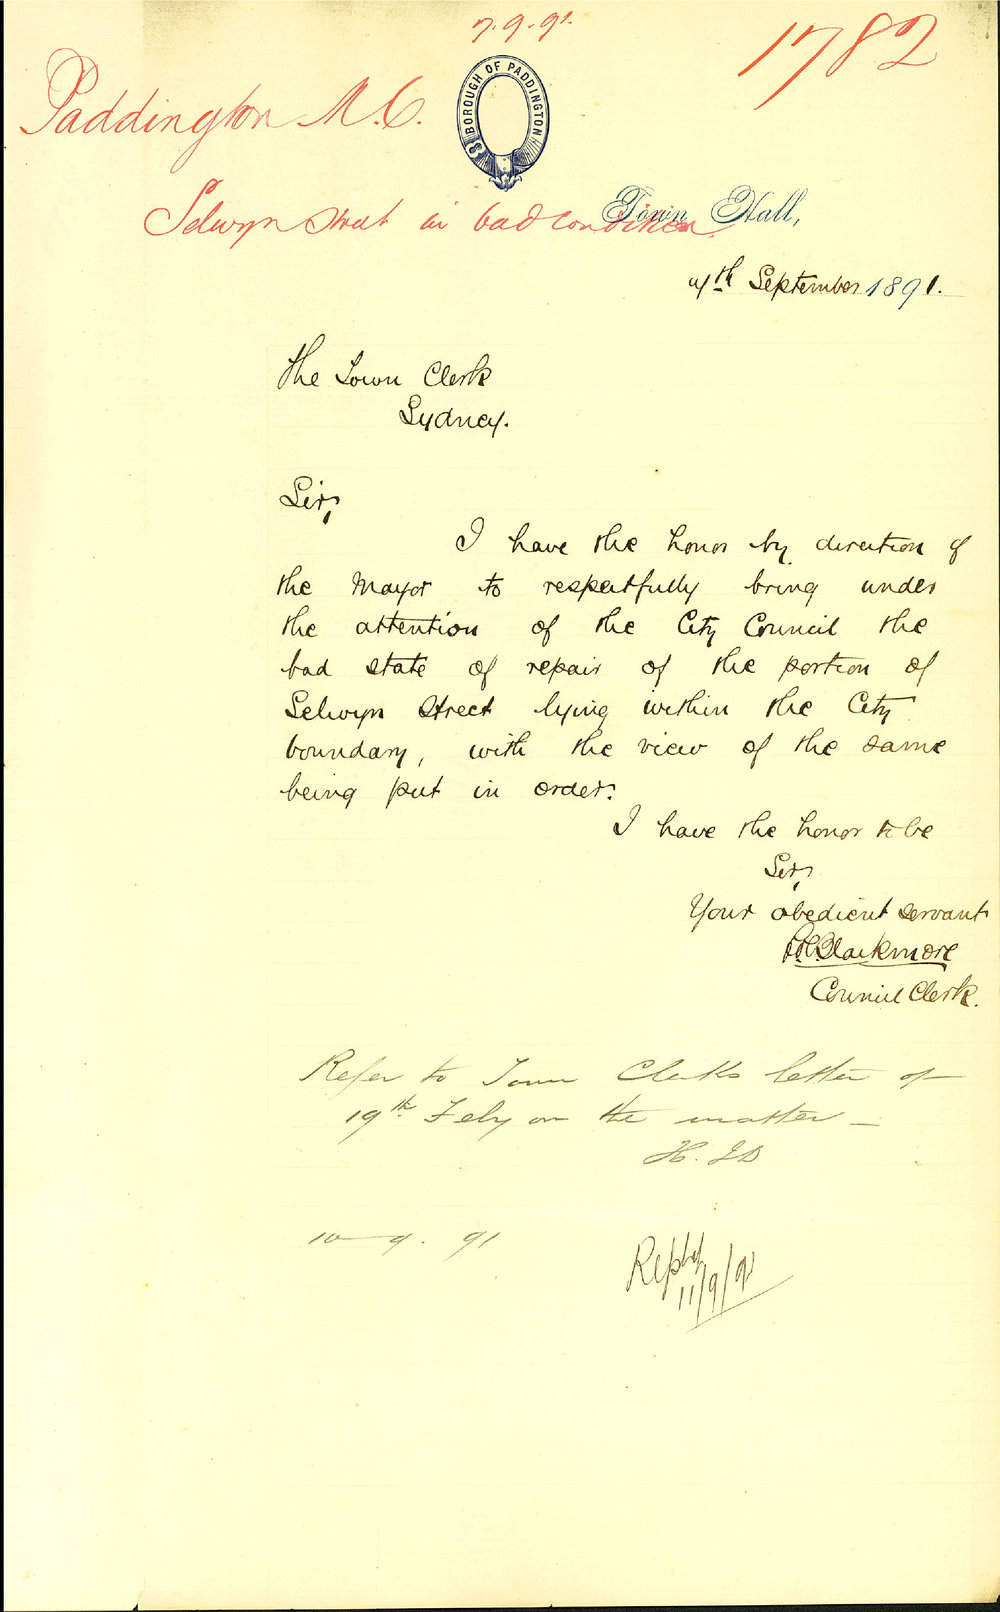 7.9.91.
1782
Paddington M.C.
BOROUGH OF PADDINGTON
Selwyn Street in bad condition
Town Hall,
4th September 1891.
The Town Clerk
Sydney.
Sir,
I have the honor by direction of
the Mayor to respectfully bring under
the attention of the City Council the
bad state of repair of the portion of
Selwyn Street lying within the City
boundary, with the view of the same
being put in order.
I have the honor to be
Sir,
Your obedient servant
Blackmore
Council Clerk.
Refer to Town Clerks letter of
19th Feby on the matter —
10 - 9 . 91
Replied
11/9/91